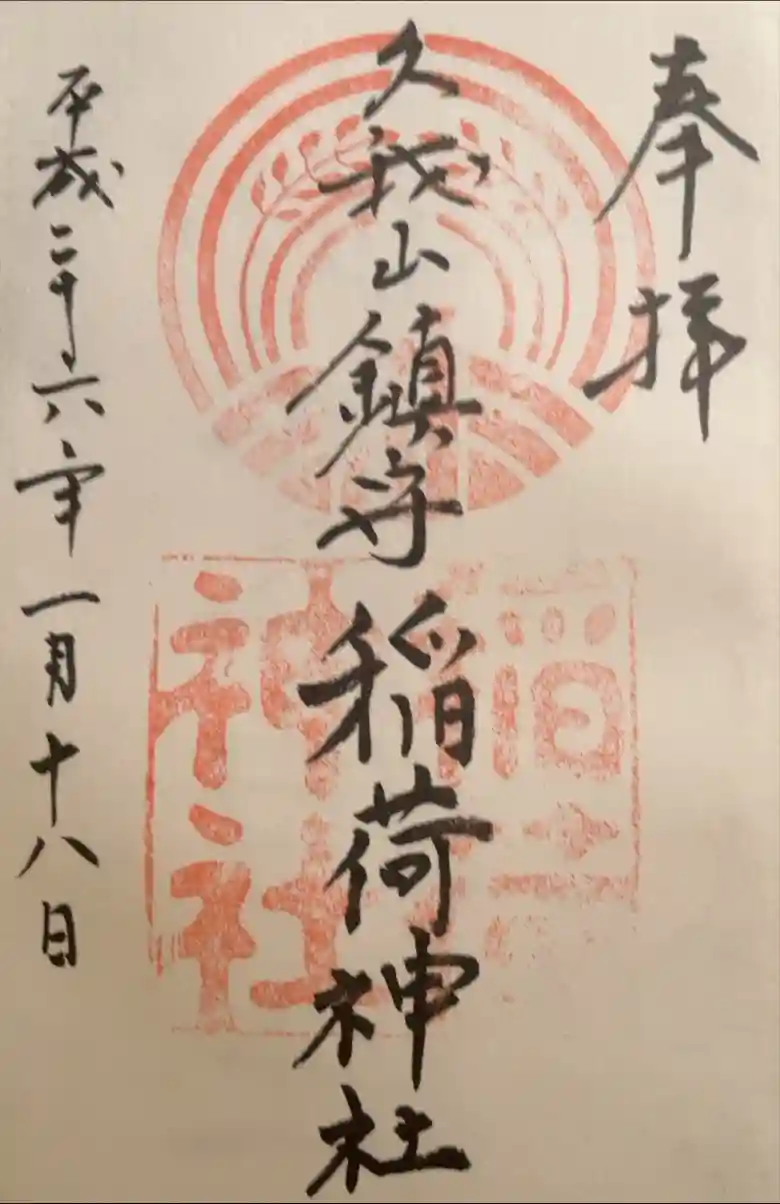 奉拝
久我山鎮守稲荷神社
平成二十六年一月十八日
稲荷
神社